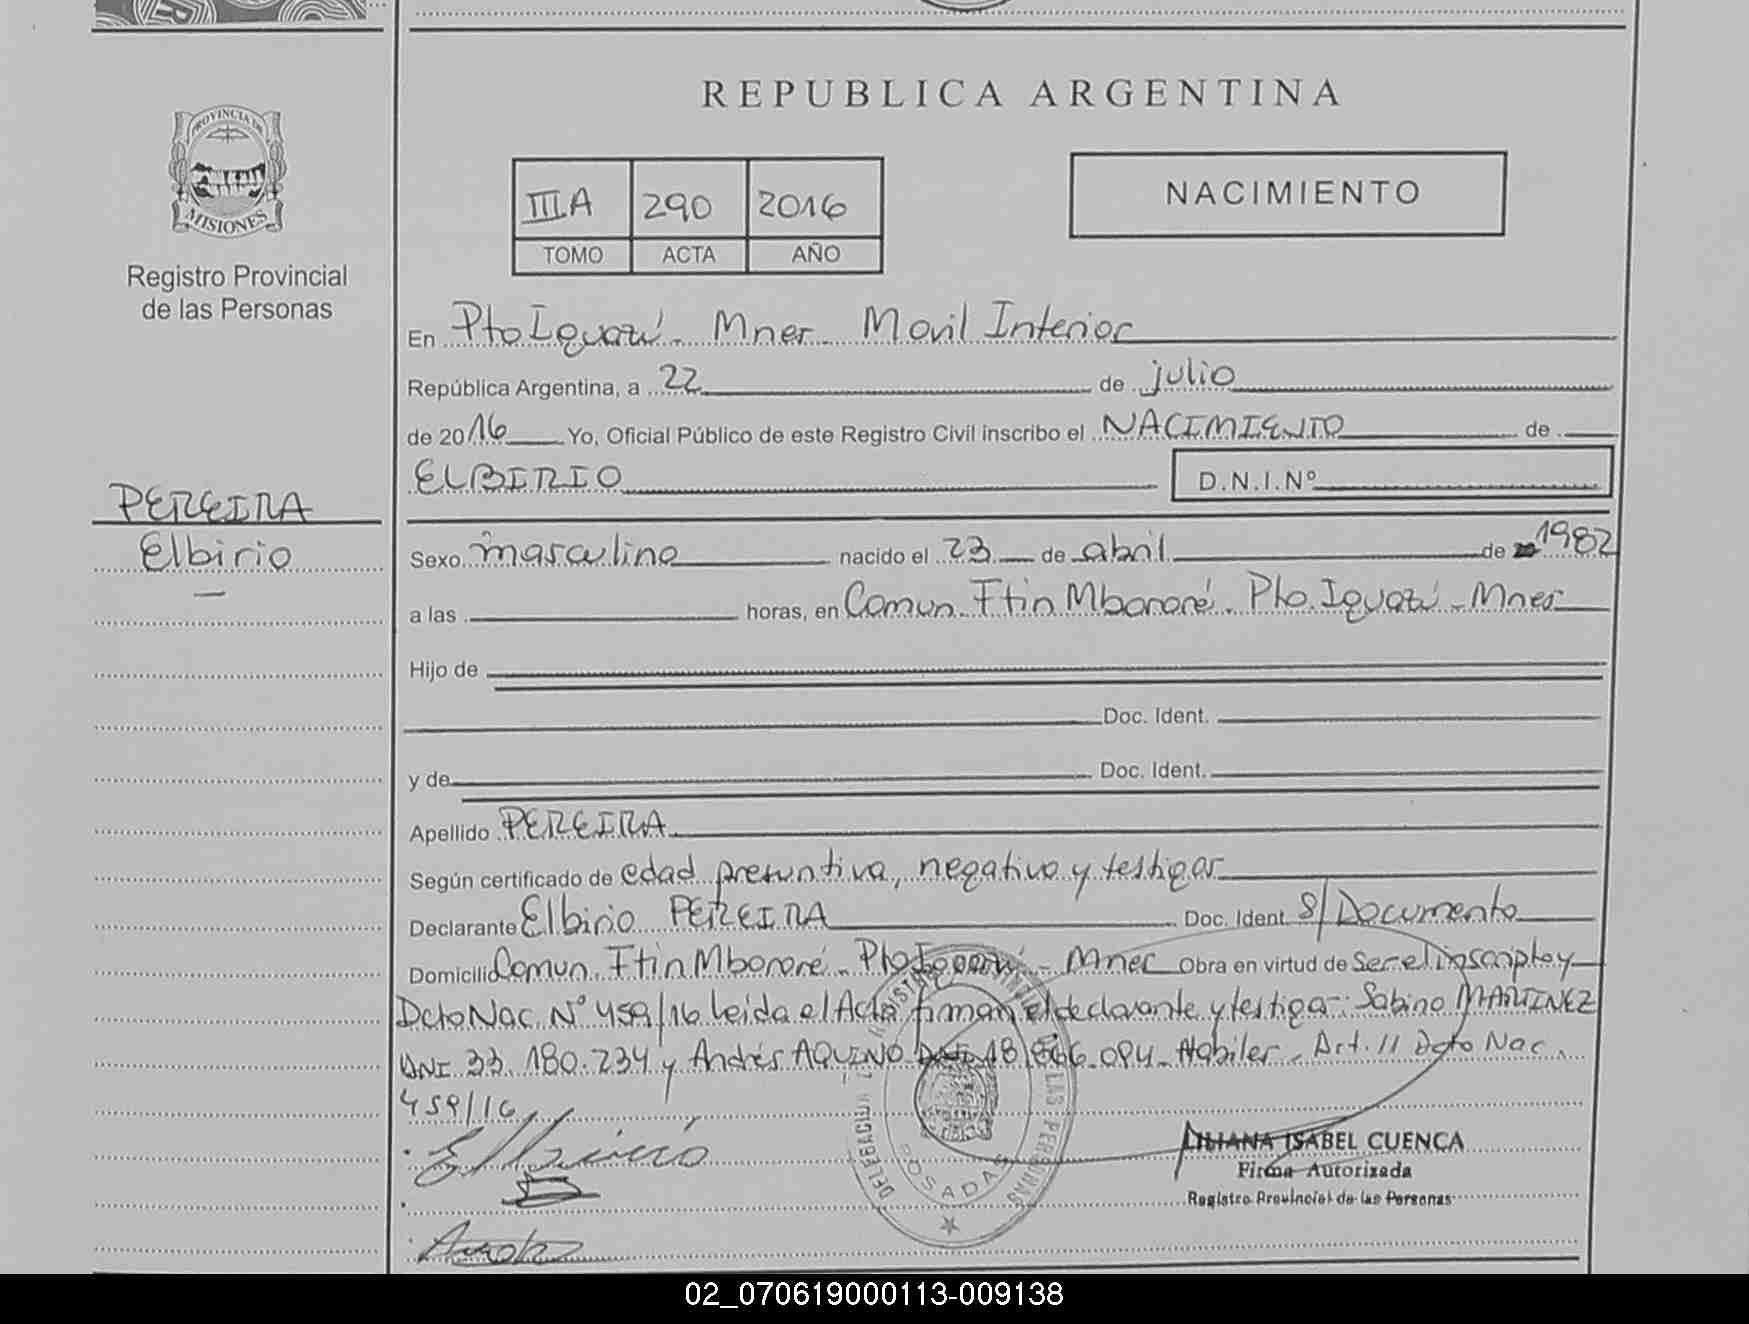 REPUBLICA ARGENTINA
PROVINCIA DE
MISIONES
Registro Provincial
de las Personas
IIIA 290 2016
TOMO ACTA AÑO
NACIMIENTO
En Pto Iguazú - Mnes - Movil Interior
República Argentina, a 22 de julio
de 2016 Yo, Oficial Público de este Registro Civil inscribo el NACIMIENTO de
ELBIRIO D.N.I.Nº
PEREIRA
Elbirio
Sexo masculino nacido el 23 de abril de 1982
a las horas, en Comun. Ftin Mbororé. Pto. Iguazú - Mnes
Hijo de
Doc. Ident.
y de Doc. Ident.
Apellido PEREIRA
Según certificado de edad presuntiva, negativo y testigos
Declarante Elbirio PEREIRA Doc. Ident. S/Documento
Domicilio Comun. Ftin Mbororé - Pto Iguazú - Mnes Obra en virtud de ser el inscripto y
Dcto Nac. Nº 459/16 Leida el Acta firman el declarante y testigos: Sabino MARTINEZ
DNI 33.180.234 y Andrés AQUINO DNI 18.866.084 - Habiles - Art. 11 Dcto Nac.
459/16
Elbirio
DELEGACION
LAS PERSONAS
POSADAS
LILIANA ISABEL CUENCA
Firma Autorizada
Registro Provincial de las Personas
02_070619000113-009138